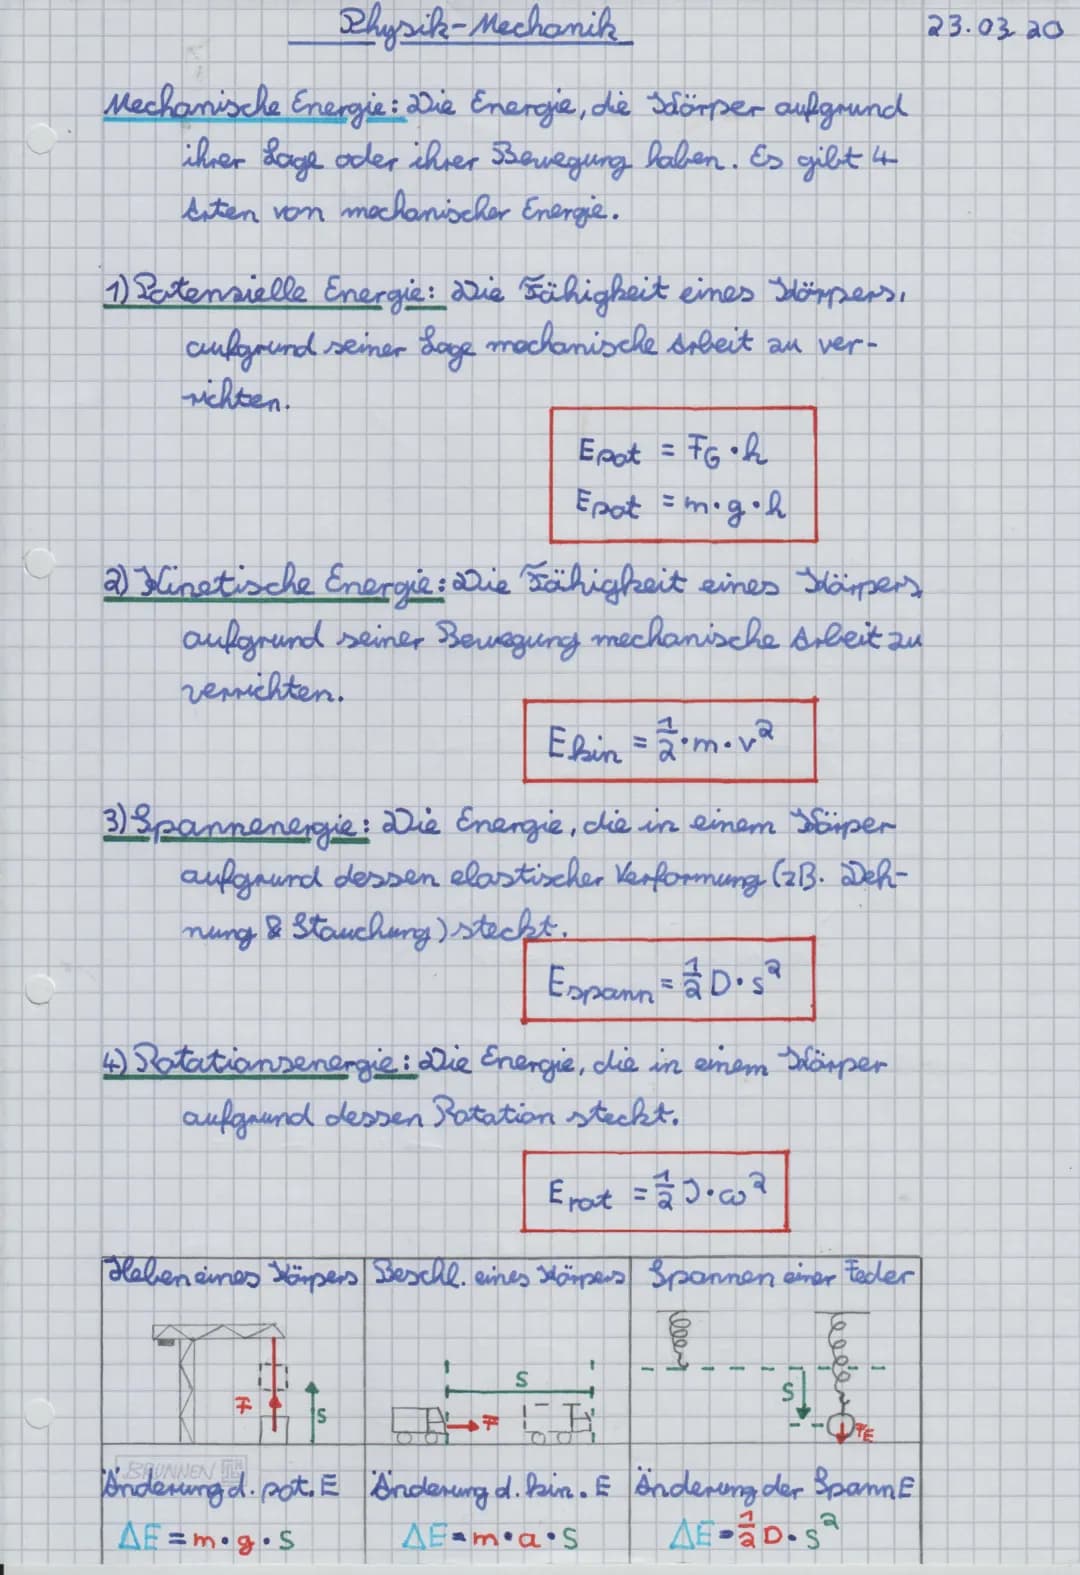 Physik-Mechanik
23.03.20
Mechanische Energie: Die Energie, die Körper aufgrund
ihrer Lage oder ihrer Bewegung haben. Es gibt 4
Arten von mechanischer Energie.
1) Potenzielle Energie: Die Fähigkeit eines Körpers,
aufgrund seiner Lage mechanische Arbeit zu ver-
richten.
Epot = FG · h
Epot = m · g · h
2) Kinetische Energie: Die Fähigkeit eines Körpers,
aufgrund seiner Bewegung mechanische Arbeit zu
verrichten.
Ekin = 1/2 · m · v²
3) Spannenergie: Die Energie, die in einem Körper
aufgrund dessen elastischer Verformung (zB. Deh-
nung & Stauchung) steckt.
Espann = 1/2 D · s²
4) Rotationsenergie: Die Energie, die in einem Körper
aufgrund dessen Rotation steckt.
Erot = 1/2 J · ω²
Heben eines Körpers
Beschl. eines Körpers
Spannen einer Feder
F
s
s
F
s
FE
BRUNNEN
Änderung d. pot. E
Änderung d. kin. E
Änderung der SpannE
ΔE = m · g · s
ΔE = m · a · s
ΔE = 1/2 D · s²